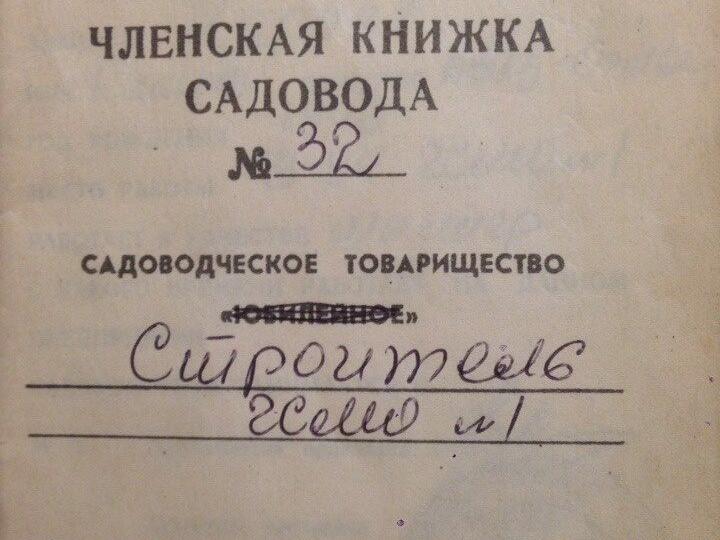 ЧЛЕНСКАЯ КНИЖКА
САДОВОДА
№ 32
САДОВОДЧЕСКОЕ ТОВАРИЩЕСТВО
«ЮБИЛЕЙНОЕ»
Строитель
№1